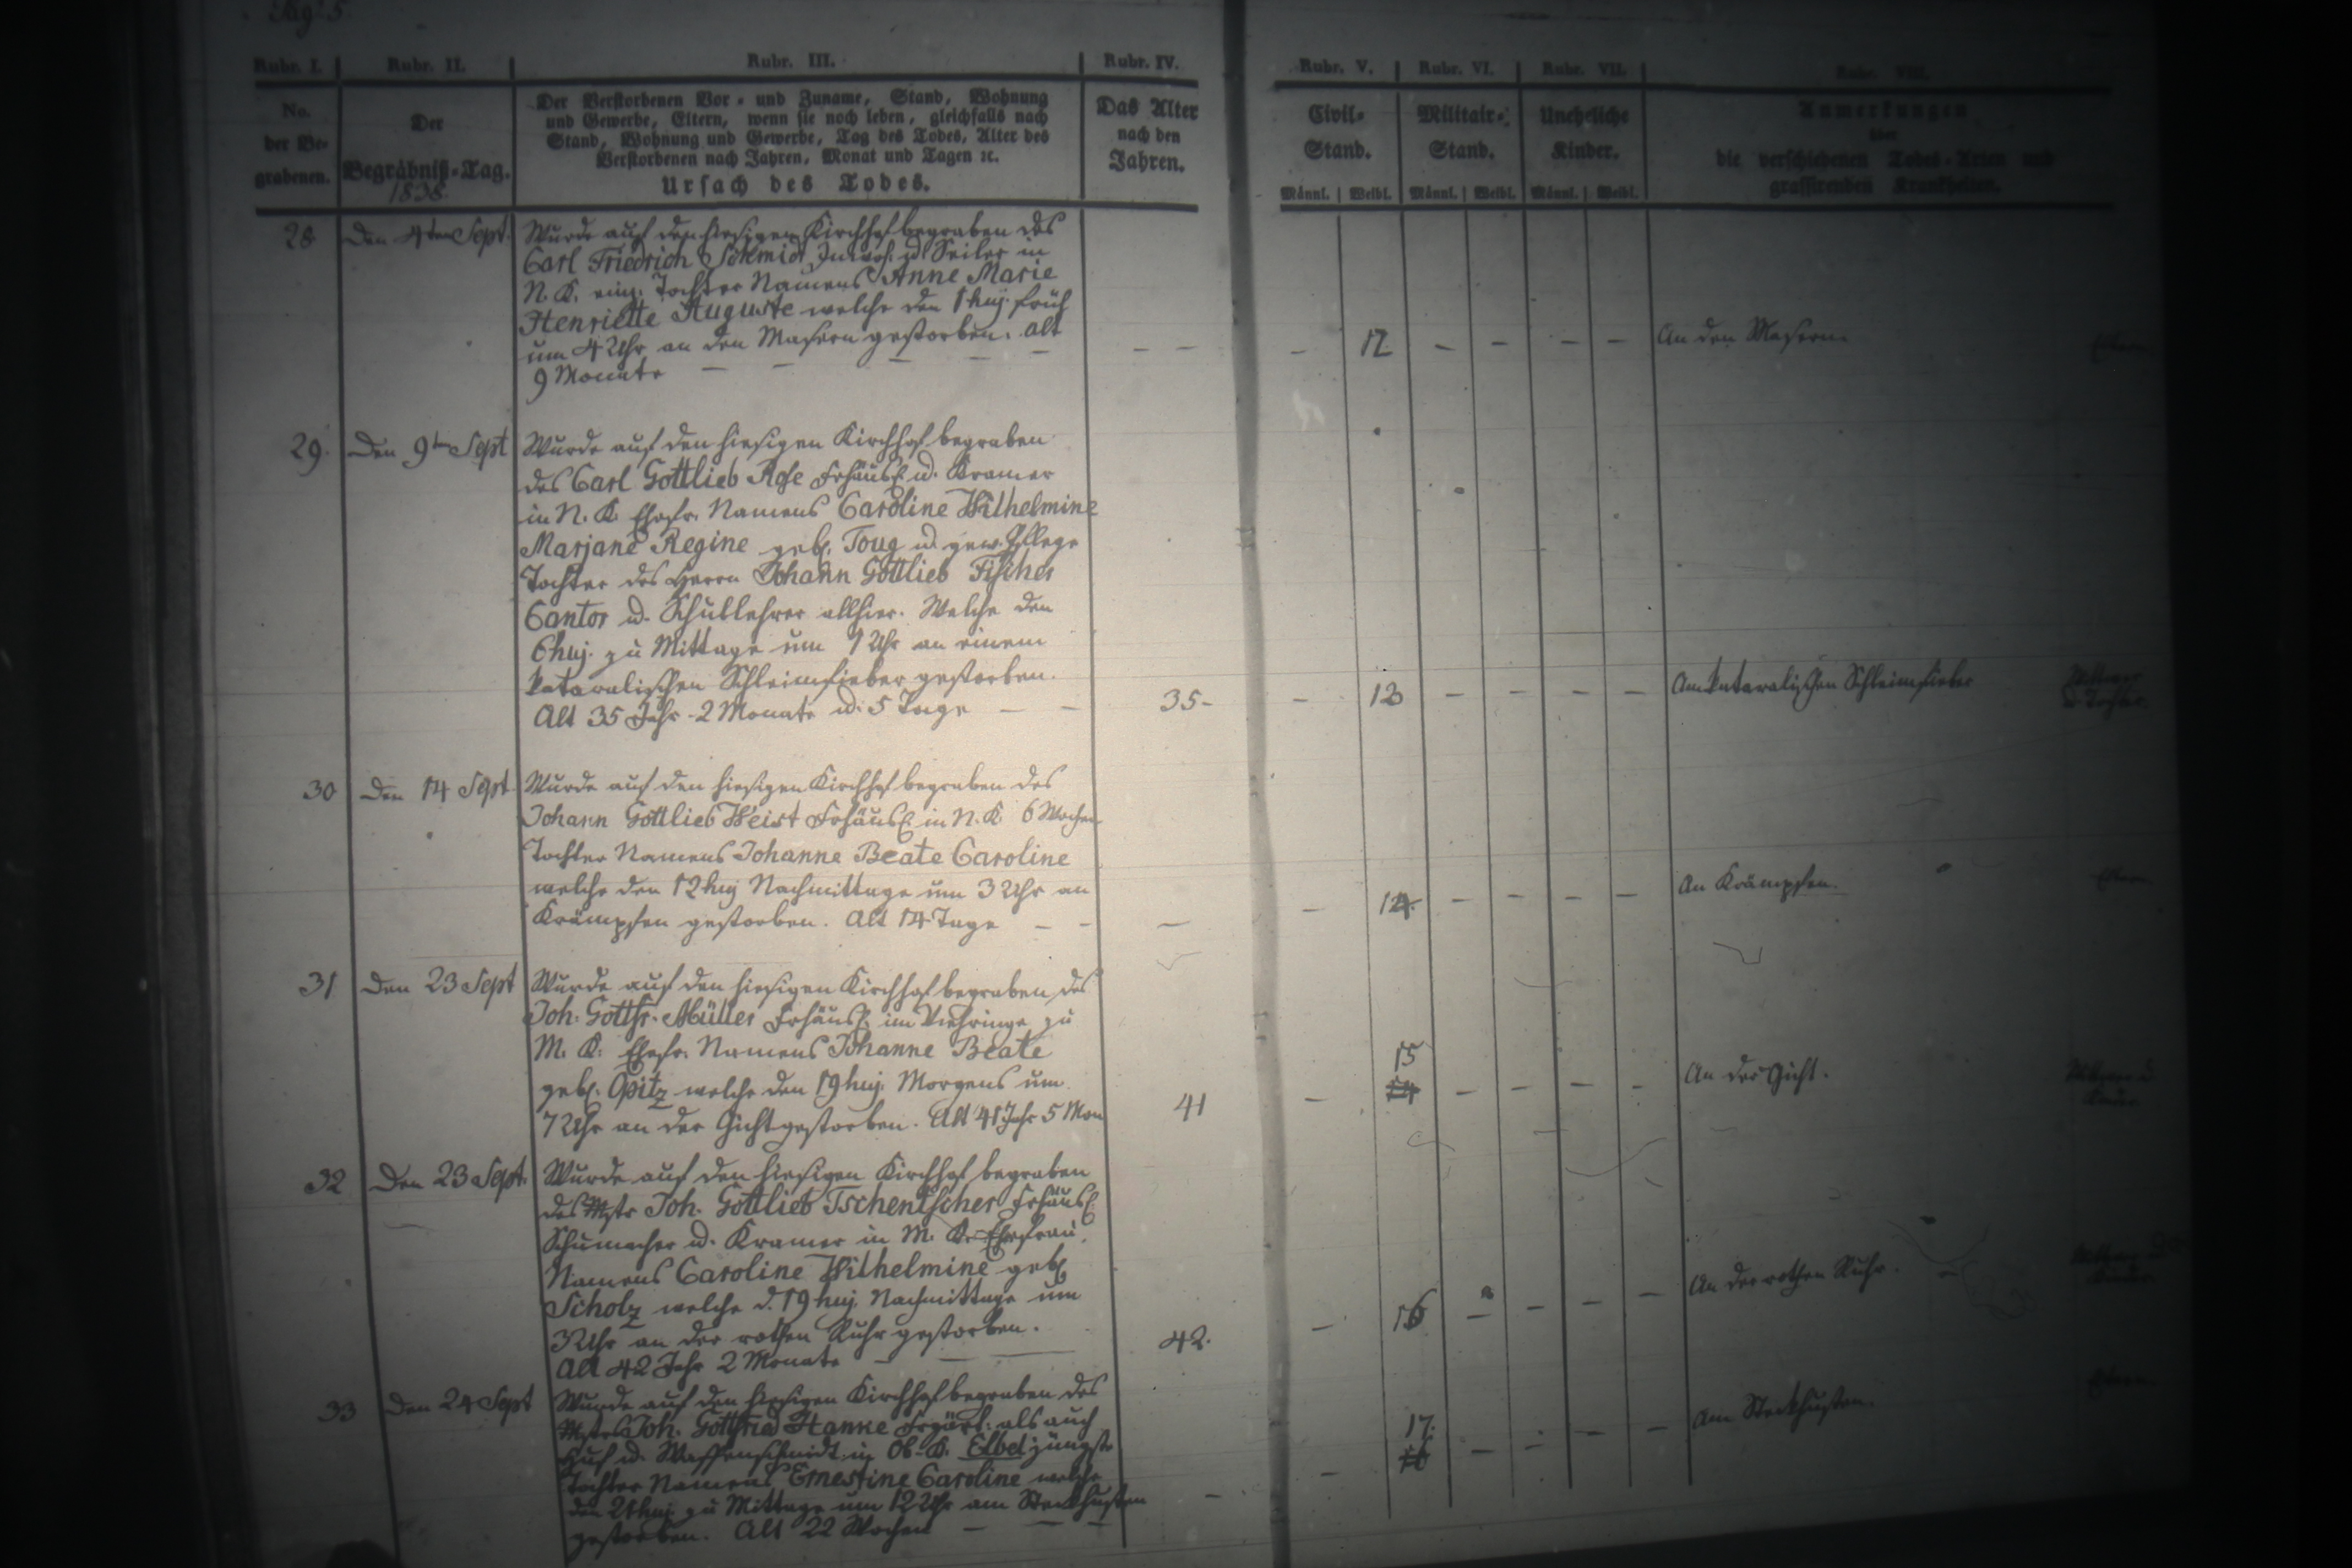 Pag. 5
Rubr. I. Rubr. II. Rubr. III. Rubr. IV. Rubr. V. Rubr. VI. Rubr. VII. Rubr. VIII.
No.
der Be-
grabenen.
Der
Begräbniß-Tag.
1838
Der Verstorbenen Vor- und Zuname, Stand, Wohnung
und Gewerbe, Eltern, wenn sie noch leben, gleichfalls nach
Stand, Wohnung und Gewerbe, Tag des Todes, Alter des
Verstorbenen nach Jahren, Monat und Tagen ꝛc.
Ursach des Todes.
Das Alter
nach den
Jahren.
Civil-
Stand.
Männl. Weibl.
Militair-
Stand.
Männl. Weibl.
Uneheliche
Kinder.
Männl. Weibl.
Anmerkungen
über
die verschiedenen Todes-Arten und
grassirenden Krankheiten.
28. Den 4ten Sept. Wurde auf den hiesigen Kirchhof begraben des
Carl Friedrich Schmidt Inwoh. u. Seiler in
N. K. einz. Tochter Namens Anne Marie
Henriette Auguste welche den 1 huj. früh
um 4 Uhr an den Masern gestorben. alt
9 Monate — — — — —
— — — 12 — — — — An den Masern. Eltern
29. Den 9ten Sept Wurde auf den hiesigen Kirchhof begraben
des Carl Gottlieb Frhäusl. u. Kramer
in N. K. Ehefr. Namens Caroline Wilhelmine
Marjane Regine geb. u. gew. Pflege
Tochter des Herrn Johann Gottlieb Fischer
Cantor u. Schullehrer allhier. Welche den
6 huj. zu Mittage um 1 Uhr an einem
kataralischen Schleimfieber gestorben.
Alt 35 Jahr 2 Monate u. 5 Tage — —
35 - — 13 — — — — Am kataralischen Schleimfieber Wittwer
u. Tochter.
30 Den 14 Sept Wurde auf den hiesigen Kirchhof begraben des
Johann Gottlieb Weist Frhäusl. in N. K. 6 Wochen
Tochter Namens Johanne Beate Caroline
welche den 12 huj Nachmittage um 3 Uhr an
Krämpfen gestorben. Alt 14 Tage — -
— — 14. — — — — An Krämpfen. Eltern
31 Den 23 Sept Wurde auf den hiesigen Kirchhof begraben des
Joh. Gottfr. Müller Frhäusl. im Viehringe zu
M. K. Ehefr. Namens Johanne Beate
geb. Opitz welche den 19 huj. Morgens um
7 Uhr an der Gicht gestorben. Alt 41 Jahr 5 Mon
41 — 15 — — — — An der Gicht. Wittwer u
Kinder
32 Den 23 Sept. Wurde auf den hiesigen Kirchhof begraben
des Mstr Joh. Gottlieb Tschentscher Frhäusl.
Schumacher u. Kramer in M. K. Ehefrau.
Namens Caroline Wilhelmine geb.
Scholz welche d. 19 huj. Nachmittage um
3 Uhr an der rothen Ruhr gestorben.
Alt 42 Jahr 2 Monate — —
42. — 16 — — — — An der rothen Ruhr.
33 Den 24 Sept Wurde auf den hiesigen Kirchhof begraben des
Mstr Joh. Gottfried Hanke Frgärt. als auch
Huf u. Waffenschmidt in Ob. K. Elbel jüngste
Tochter Namens Ernestine Caroline welche
den 21 huj zu Mittage um 12 Uhr am Steckhusten
gestorben. Alt 22 Wochen — — —
— — 17. — — — — Am Steckhusten. Eltern